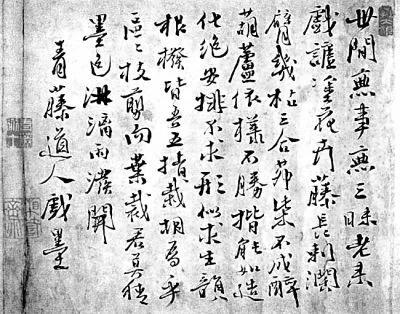 世間無事無三昧老來
戲謔塗花卉藤長刺闊
臂幾枯三合茆柴不成醉
葫蘆依樣不勝揩能如造
化絕安排不求形似求生韻
根撥皆吾五指栽胡為乎
區區枝剪而葉裁君莫猜
墨色淋漓雨撥開
青藤道人戲墨